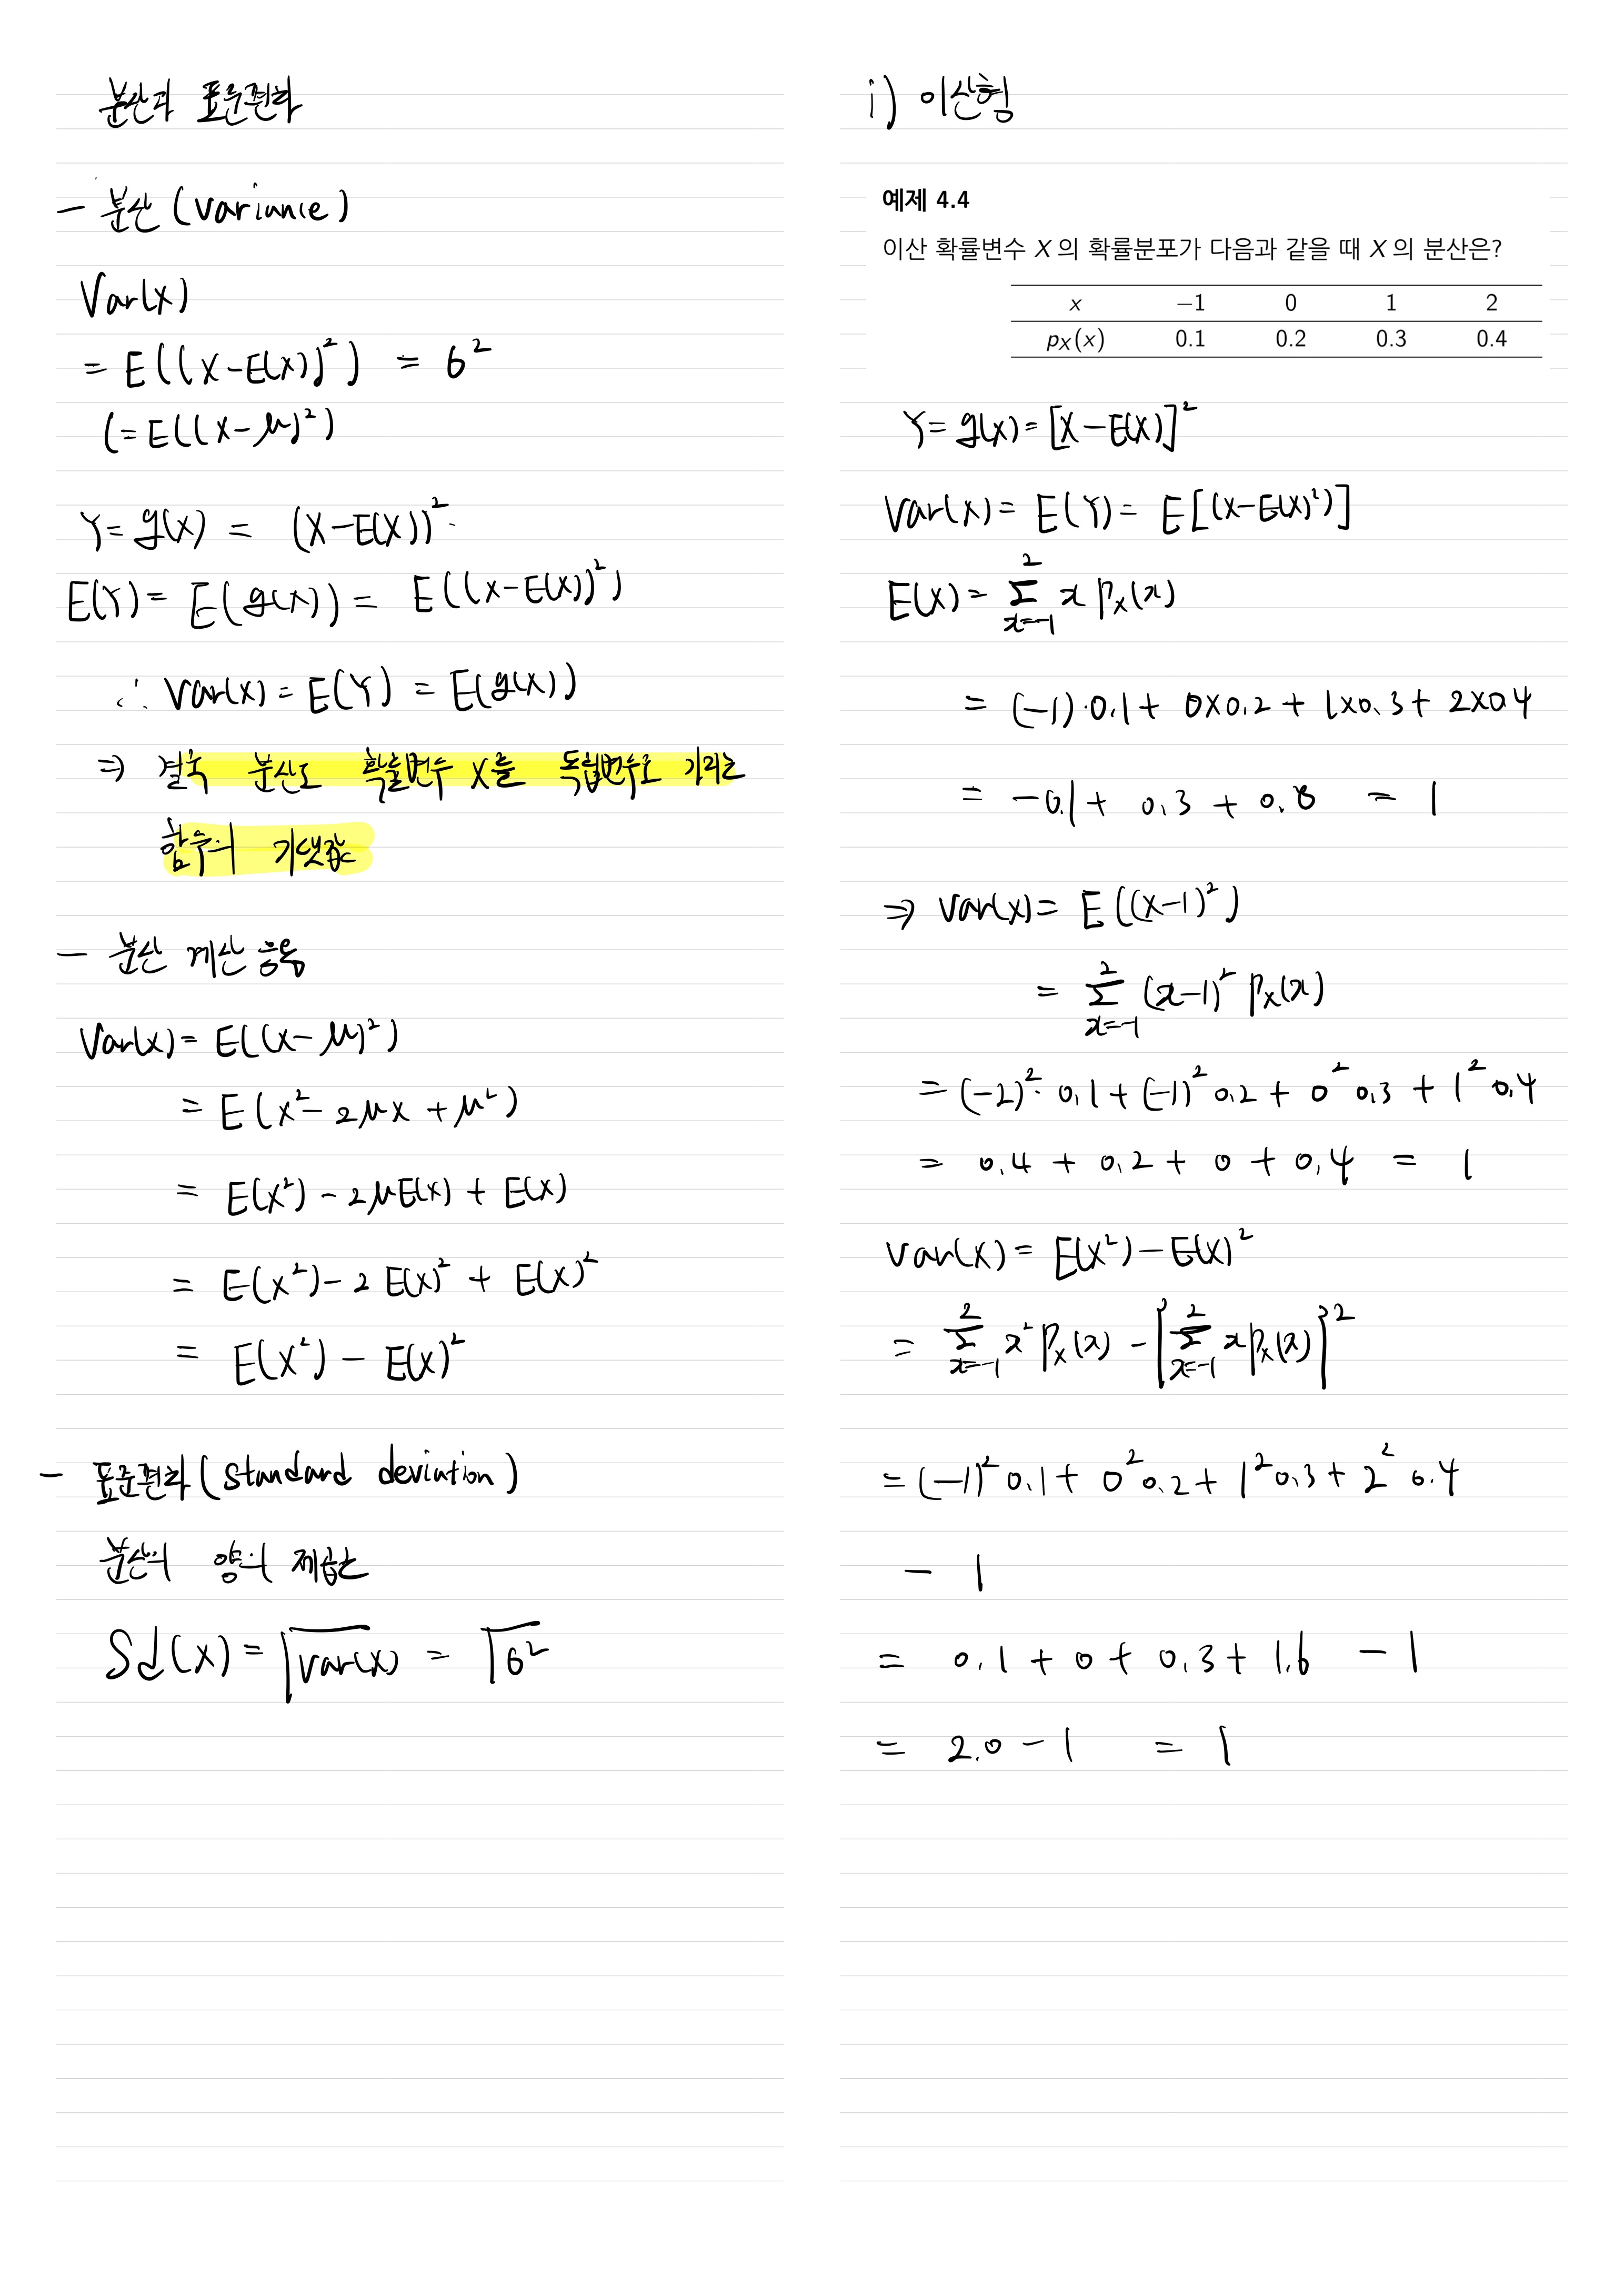 분산과 표준편차
- 분산 (variance)
Var(X)
= E((X-E(X))²) = σ²
(= E((X-μ)²)
Y = g(X) = (X-E(X))²
E(Y) = E(g(X)) = E((X-E(X))²)
∴ Var(X) = E(Y) = E(g(X))
⇒ 결국 분산도 확률변수 X를 독립변수로 가지는
함수의 기댓값
- 분산 계산
Var(X) = E((X-μ)²)
= E(X²-2μX+μ²)
= E(X²) - 2μE(X) + E(X)
= E(X²) - 2E(X)² + E(X)²
= E(X²) - E(X)²
- 표준편차 (standard deviation)
분산의 양의 제곱근
Sd(X) = √Var(X) = √σ²
i) 이산형
예제 4.4
이산 확률변수 X 의 확률분포가 다음과 같을 때 X 의 분산은?
x −1 0 1 2
pX(x) 0.1 0.2 0.3 0.4
Y = g(X) = [X-E(X)]²
Var(X) = E(Y) = E[(X-E(X)²)]
E(X) = Σ_{x=-1}^{2} x pX(x)
= (-1)·0.1 + 0×0.2 + 1×0.3 + 2×0.4
= -0.1 + 0.3 + 0.8 = 1
⇒ Var(X) = E((X-1)²)
= Σ_{x=-1}^{2} (x-1)² pX(x)
= (-2)²·0.1 + (-1)² 0.2 + 0² 0.3 + 1² 0.4
= 0.4 + 0.2 + 0 + 0.4 = 1
Var(X) = E(X²) - E(X)²
= Σ_{x=-1}^{2} x² pX(x) - {Σ_{x=-1}^{2} x pX(x)}²
= (-1)² 0.1 + 0² 0.2 + 1² 0.3 + 2² 0.4
- 1
= 0.1 + 0 + 0.3 + 1.6 - 1
= 2.0 - 1 = 1